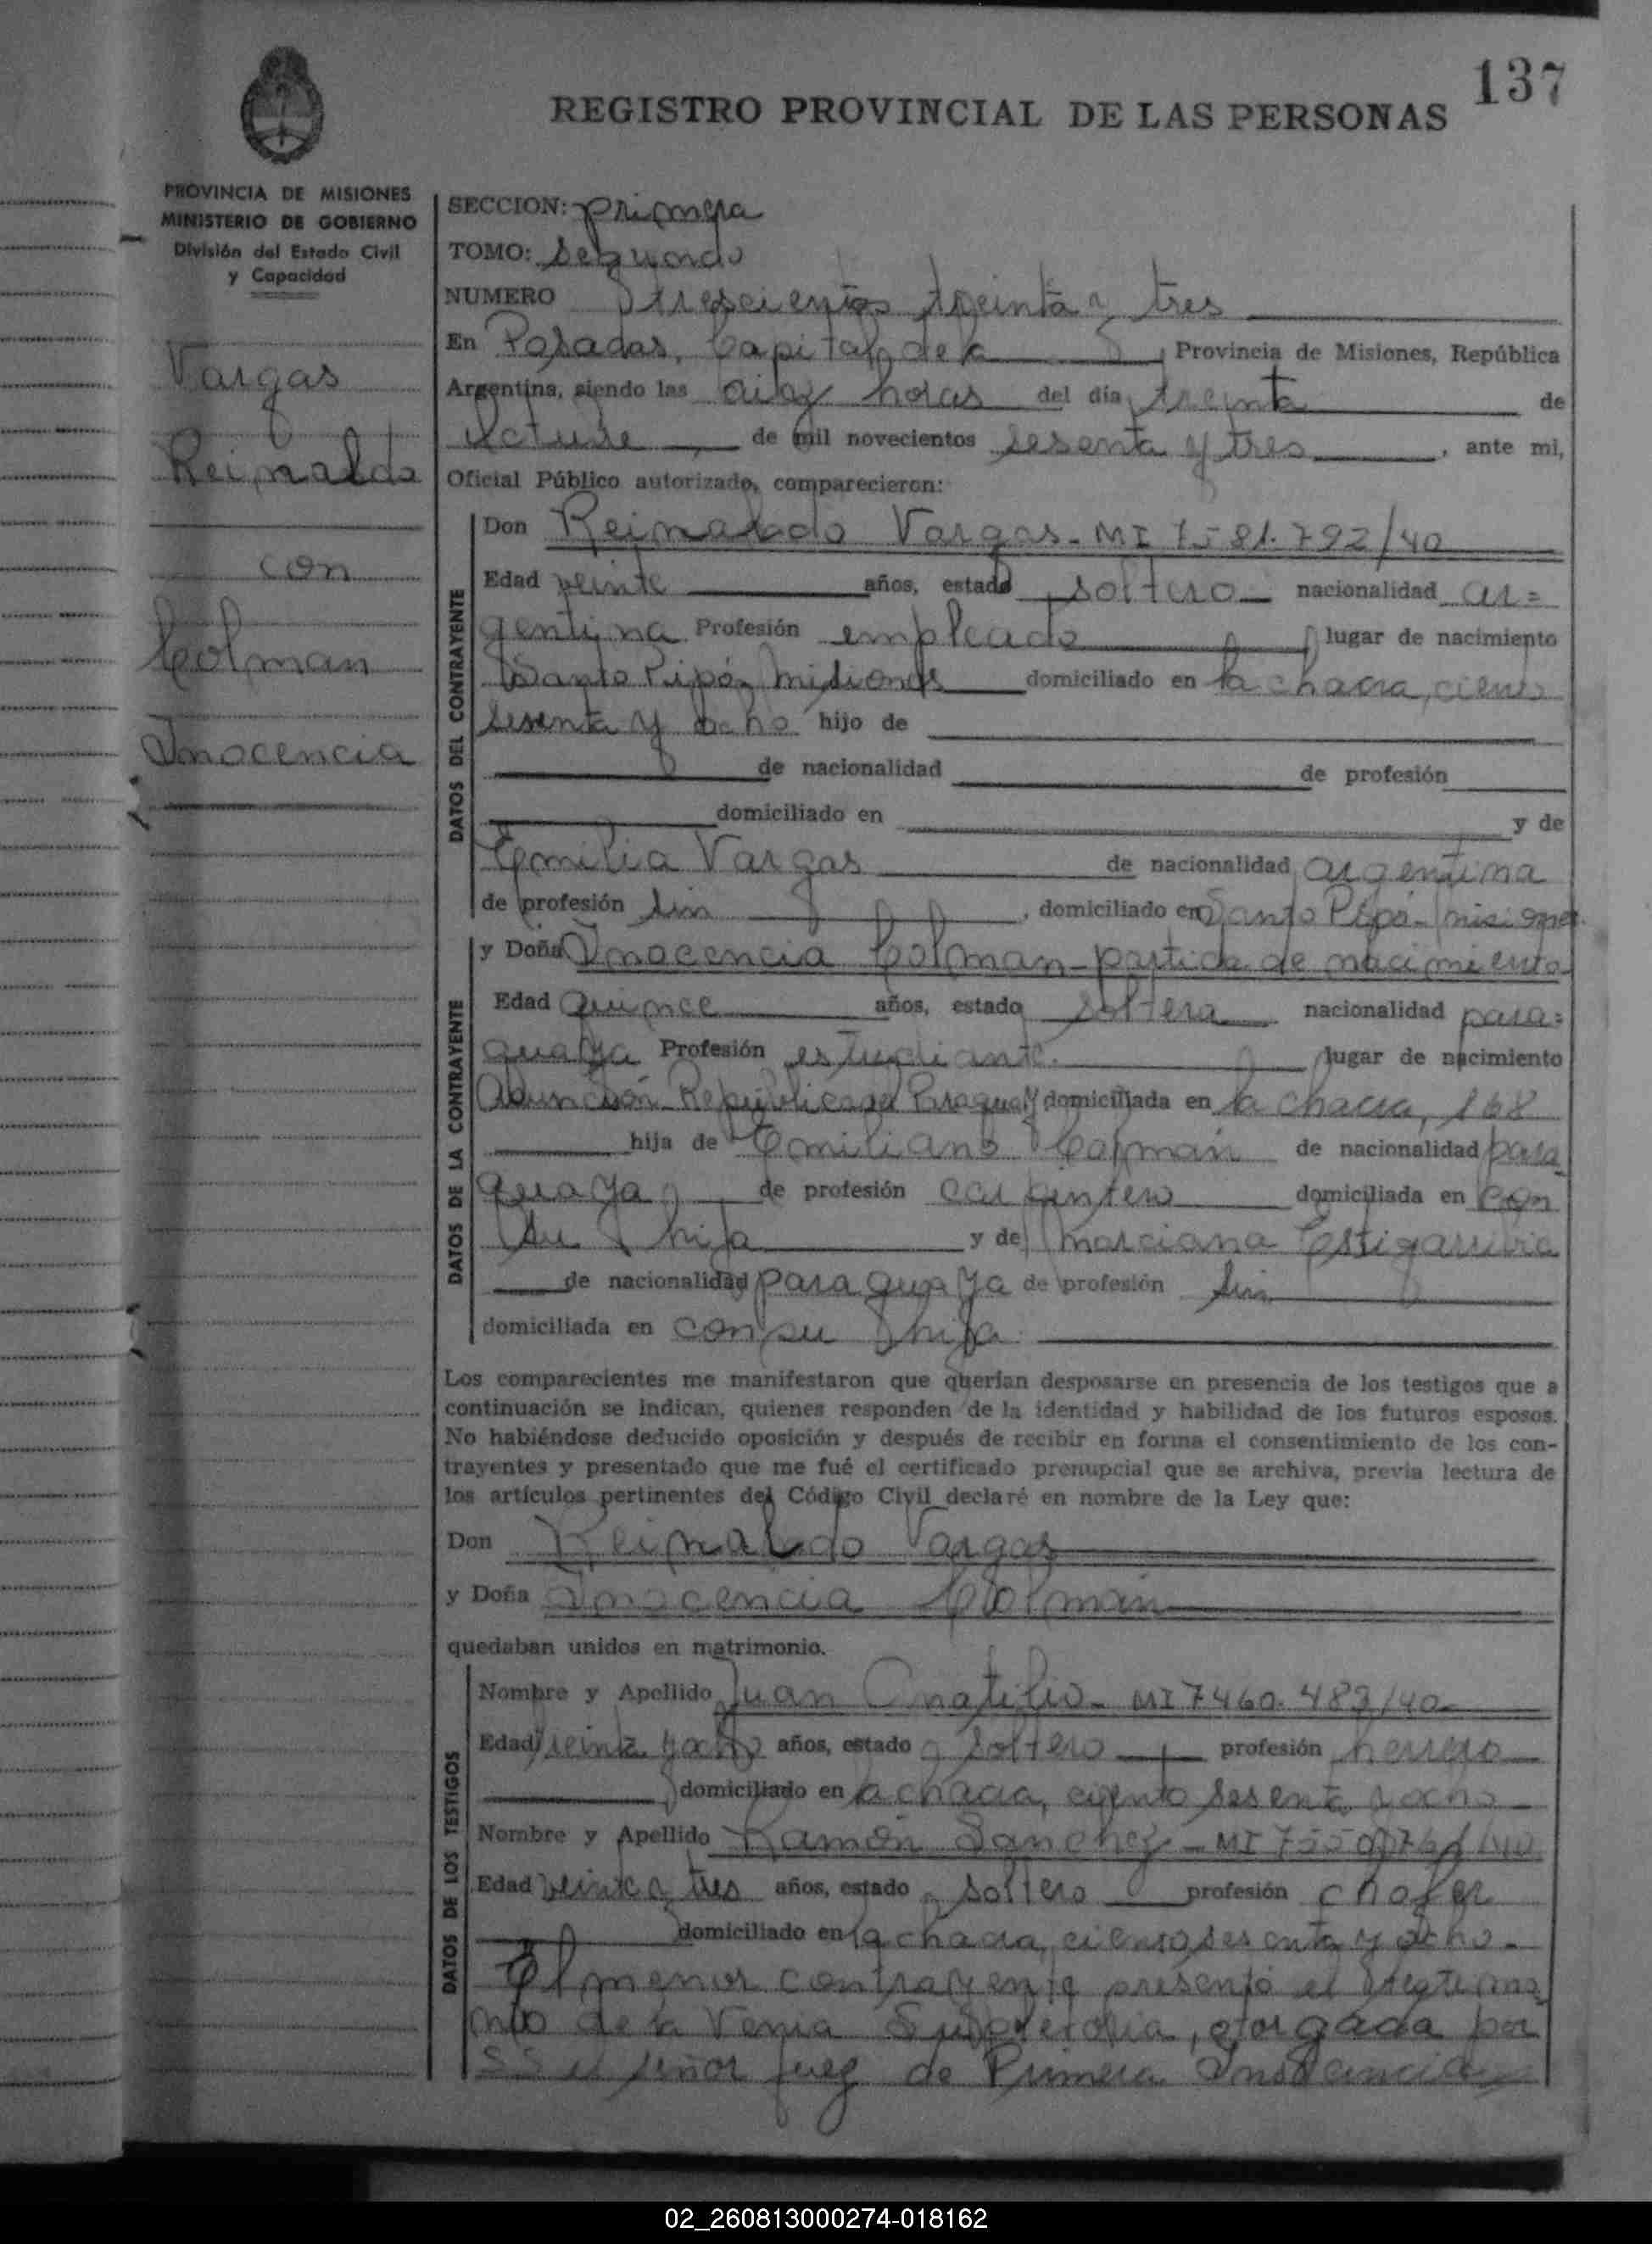 137
REGISTRO PROVINCIAL DE LAS PERSONAS
PROVINCIA DE MISIONES
MINISTERIO DE GOBIERNO
División del Estado Civil
y Capacidad
Vargas
Reinaldo
con
Colman
Inocencia
SECCION: primera
TOMO: Segundo
NUMERO trescientos treinta y tres
En Posadas, Capital de la , Provincia de Misiones, República
Argentina, siendo las diez horas del día treinta de
octubre de mil novecientos sesenta y tres , ante mi,
Oficial Público autorizado, comparecieron:
DATOS DEL CONTRAYENTE
Don Reinaldo Vargas - MI 7581.792/40
Edad veinte años, estado soltero nacionalidad ar=
gentina Profesión empleado lugar de nacimiento
Santo Pipó - Misiones domiciliado en la chacra, ciento
sesenta y ocho hijo de
de nacionalidad de profesión
domiciliado en y de
Emilia Vargas de nacionalidad argentina
de profesión sin , domiciliado en Santo Pipó - Misiones
DATOS DE LA CONTRAYENTE
y Doña Inocencia Colman - partida de nacimiento
Edad quince años, estado soltera nacionalidad para=
guaya Profesión estudiante. lugar de nacimiento
Asunción República del Paraguay domiciliada en la chacra, 168
hija de Emiliano Colman de nacionalidad para
guaya de profesión carpintero domiciliada en con
su hija y de Marciana Estigarribia
de nacionalidad paraguaya de profesión sin
domiciliada en con su hija.
Los comparecientes me manifestaron que querían desposarse en presencia de los testigos que a
continuación se indican, quienes responden de la identidad y habilidad de los futuros esposos.
No habiéndose deducido oposición y después de recibir en forma el consentimiento de los con-
trayentes y presentado que me fué el certificado prenupcial que se archiva, previa lectura de
los artículos pertinentes del Código Civil declaré en nombre de la Ley que:
Don Reinaldo Vargas
y Doña Inocencia Colman
quedaban unidos en matrimonio.
DATOS DE LOS TESTIGOS
Nombre y Apellido Juan MI 7460.483/40
Edad treinta y ocho años, estado soltero profesión herrero
domiciliado en la chacra, ciento sesenta y ocho
Nombre y Apellido Ramón Sanchez - MI
Edad veinte y tres años, estado soltero profesión chofer
domiciliado en la chacra, ciento sesenta y ocho.
El menor contrayente presentó el testimo
nio de la Venia Supletoria, otorgada por
SS el señor Juez de Primera Instancia
02_260813000274-018162